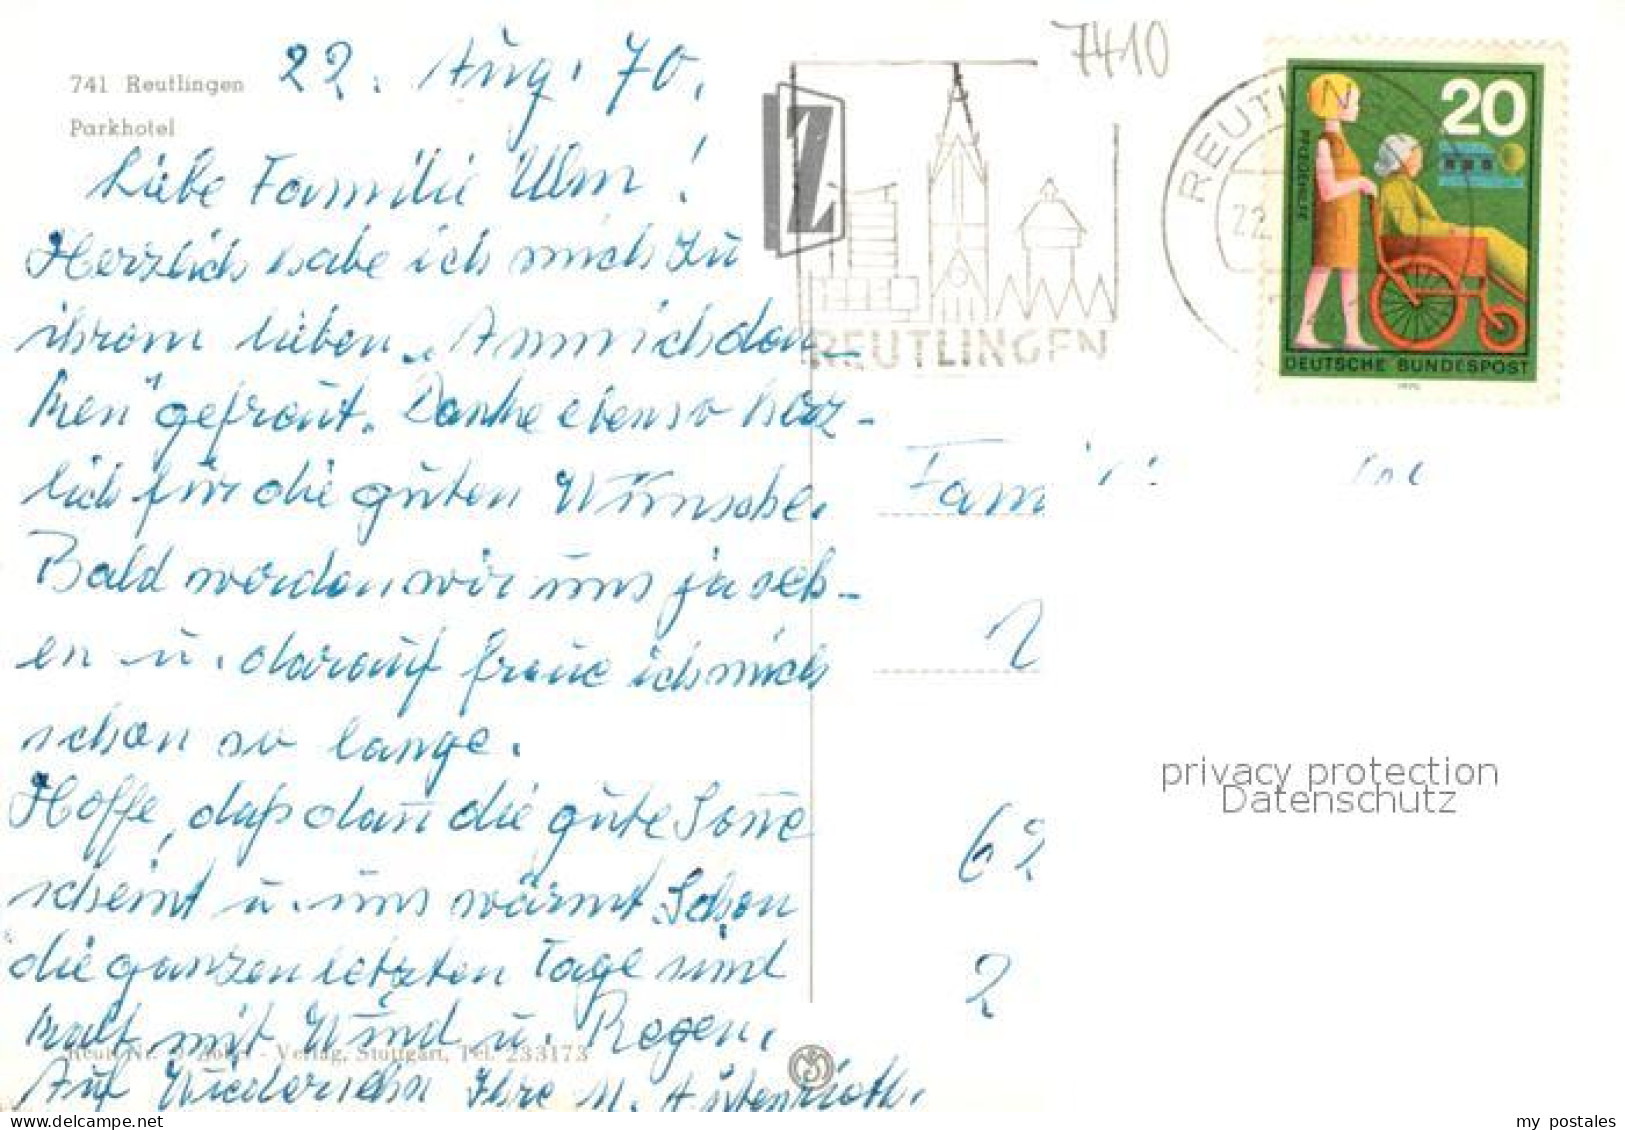 741 Reutlingen
Parkhotel
22. Aug. 70.
Liebe Familie Ulm!
Herzlich habe ich mich zu
ihrem lieben „Annichdan-
ken" gefreut. Danke ebenso herz-
lich für die guten Wünsche.
Bald werden wir uns ja seh-
en u. darauf freue ich mich
schon so lange.
Hoffe, daß dañ die gute Soñe
scheint u. uns wärmt. Schon
die ganzen letzten Tage sind
kalt mit Wind u. Regen.
Auf Wiedersehn Ihre M.
Verlag, Stuttgart, Tel. 233173
7410
Z
REUTLINGEN
REUTLING
22
20
PFLEGEHILFE
DEUTSCHE BUNDESPOST
1970
Fam
62
2
privacy protection
Datenschutz
my postales